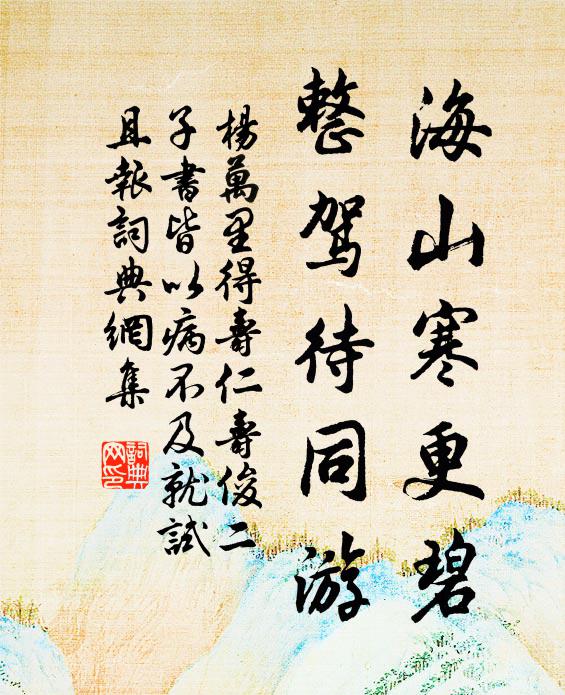 海山寒更碧
整驾待同游
楊萬里得壽仁壽俊二
子書皆以病不及就試
且報詞典網集
詞典
网印